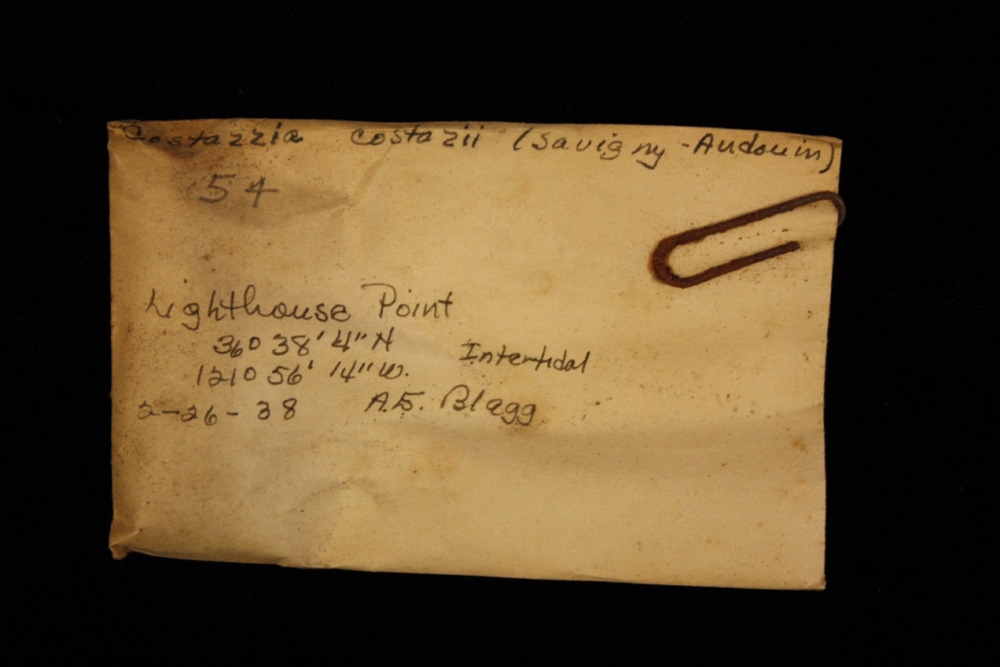 Costazzia costazii (Savigny-Audouin)
54
Lighthouse Point
36° 38' 4" N
Intertidal
121° 56' 14" W.
2-26-38 A.B. Blagg